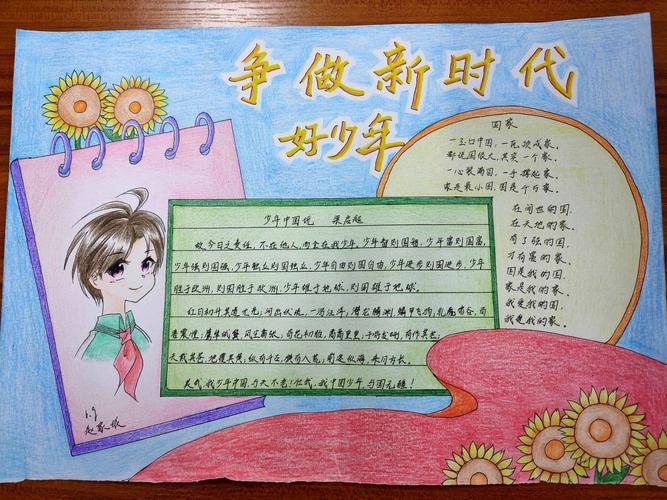 争做新时代
好少年
国家
一玉口中国,一瓦顶成家,
都说国很大,其实一个家。
一心装满国,一手撑起家。
家是最小国,国是千万家。
在闻世的国,
在天地的家。
有了强的国,
才有富的家。
国是我的国,
家是我的家。
我爱我的国,
我爱我的家。
少年中国说 梁启超
故今日之责任,不在他人,而全在我少年。少年智则国智,少年富则国富,
少年强则国强,少年独立则国独立,少年自由则国自由,少年进步则国进步,少年
胜于欧洲,则国胜于欧洲,少年雄于地球,则国雄于地球。
红日初升,其道大光;河出伏流,一泻汪洋;潜龙腾渊,鳞甲飞扬;乳虎啸谷,百
兽震惶;鹰隼试翼,风尘翕张;奇花初胎,矞矞皇皇;干将发硎,有作其芒;
天戴其苍,地履其黄;纵有千古,横有八荒;前途似海,来日方长。
美哉,我少年中国,与天不老!壮哉,我中国少年,与国无疆!
6.9